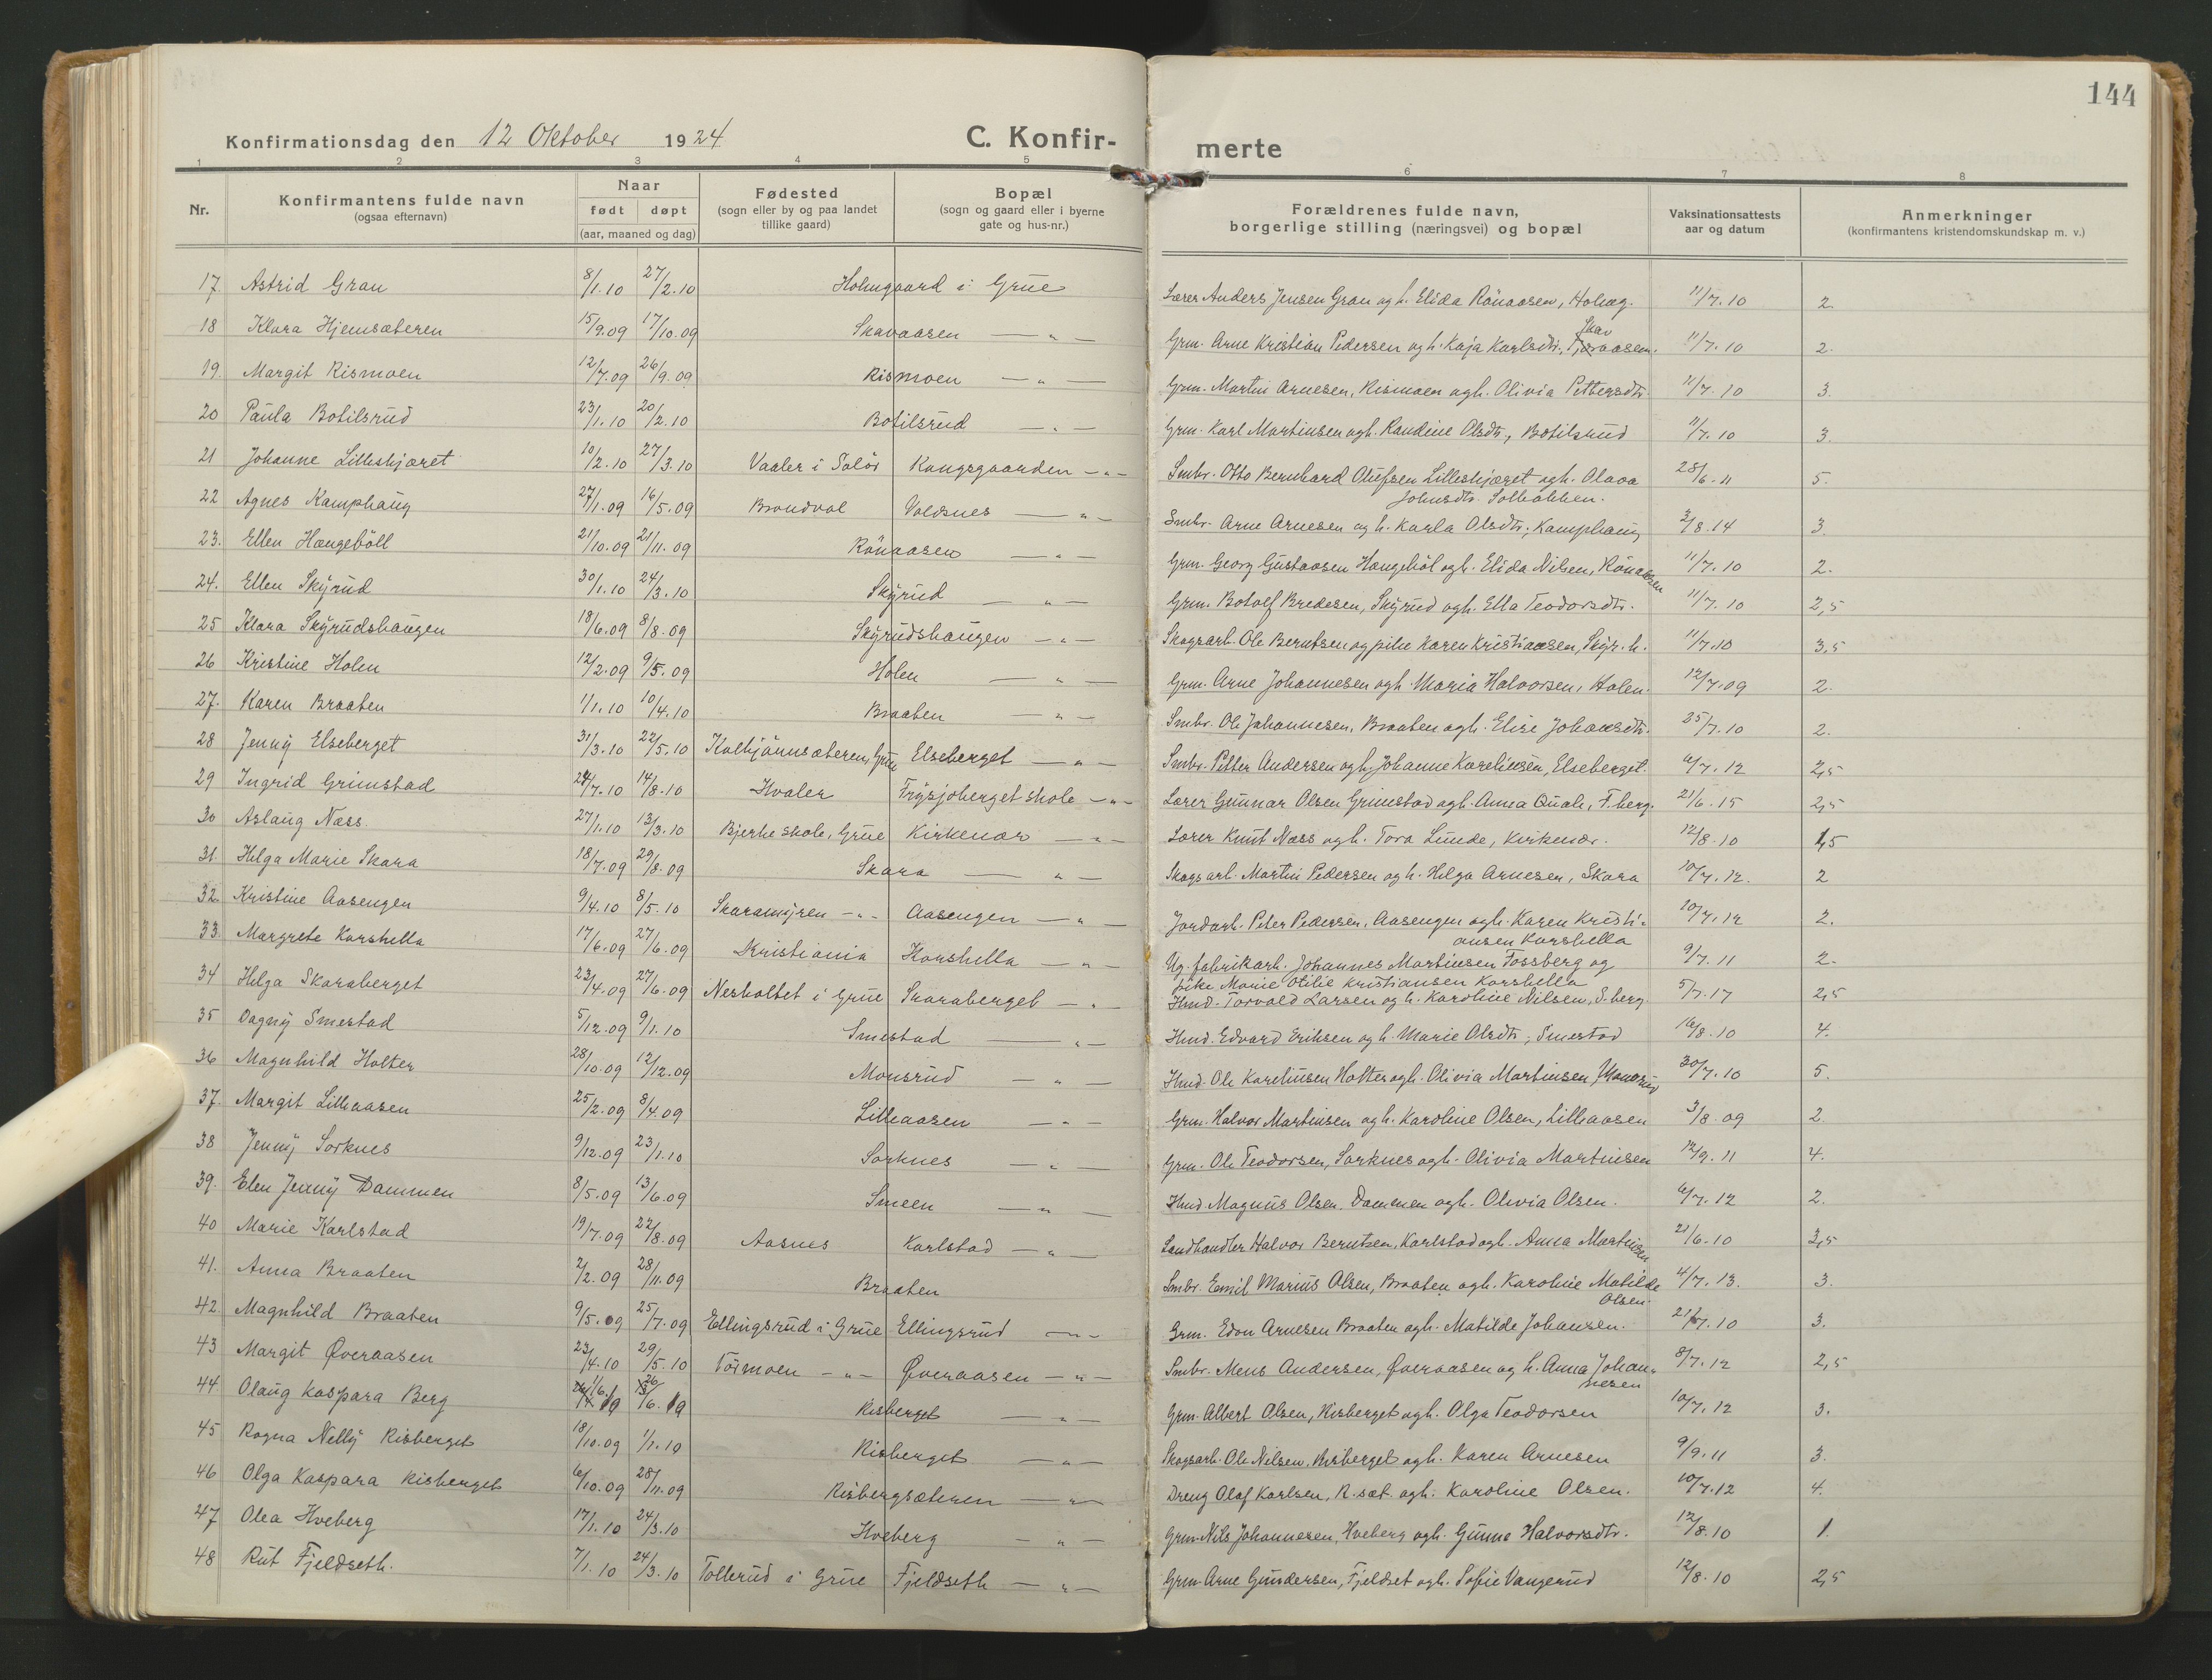 144
Konfirmationsdag den 12 Oktober 1924 C. Konfir- merte
1 2 3 4 5 6 7 8
Nr. Konfirmantens fulde navn (ogsaa efternavn) Naar født døpt (aar, maaned og dag) Fødested (sogn eller by og paa landet tillike gaard) Bopæl (sogn og gaard eller i byerne gate og hus-nr.) Forældrenes fulde navn, borgerlige stilling (næringsvei) og bopæl Vaksinationsattests aar og datum Anmerkninger (konfirmantens kristendomskundskap m. v.)
17 Astrid Gran 8/1.10 27/2.10 Holmgaard i Grue Lærer Anders Jensen Gran og h. Elida Rönaasen, Holmg. 11/7.10 2.
18 Klara Hjemsæteren 15/9.09 17/10.09 Skavaasen — " — Grm. Arne Kristian Pedersen og h. Kaja Karlsdtr., Skavaasen. 11/7.10 2.
19. Margit Rismoen 12/7.09 26/9.09 Rismoen — " — Grm. Martin Arnesen, Rismoen og h. Olivia Pettersdtr. 11/7.10 3.
20 Paula Botilsrud 23/1.10 20/2.10 Botilsrud — " — Grm. Karl Martinsen og h. Randine Olsdtr., Botilsrud 11/7.10 3.
21 Johanne Lilleskjæret 10/2.10 27/3.10 Vaaler i Solör Kongsgaarden — " — Smbr. Otto Bernhard Olufsen Lilleskjæret og h. Olava 28/6.11 5.
Johnsdtr. Solbakken.
22 Agnes Kamphaug 27/1.09 16/5.09 Brandval Valdsnes — " — Smbr. Arne Arnesen og h. Karla Olsdtr., Kamphaug 3/8.14 3.
23. Ellen Hængeböll 21/10.09 21/11.09 Rönaasen — " — Grm. Georg Gustavsen Hængeböl og h. Elida Nilsen, Rönaasen 11/7.10 2.
24. Ellen Skyrud 30/1.10 24/3.10 Skyrud — " — Grm. Botolf Bredesen, Skyrud og h. Ella Teodorsdtr. 11/7.10 2,5
25 Klara Skyrudshaugen 18/6.09 8/8.09 Skyrudshaugen — " — Skogsarb. Ole Berntsen og pike Karen Kristiansen, Skyr.h. 11/7.10 3,5
26 Kristine Holen 12/2.09 9/5.09 Holen — " — Grm. Arne Johannesen og h. Maria Halvorsen, Holen. 12/7.09 2.
27. Karen Braaten 1/1.10 10/4.10 Braaten — " — Smbr. Ole Johannesen, Braaten og h. Elise Johansdtr. 25/7.10 2.
28 Jenny Elseberget 31/3.10 22/5.10 Kolkjönnsæteren, Grue Elseberget — " — Smbr. Petter Andersen og h. Johanne Karelinsen, Elseberget. 6/7.12 2,5
29 Ingrid Grimstad 24/7.10 14/8.10 Hvaler Frysjøberget skole — " — Lærer Gunnar Olsen Grimstad og h. Anna Quale, F.berg. 21/6.15 2,5
30 Aslaug Næss. 27/1.10 13/3.10 Bjerke skole, Grue Kirkenær — " — Lærer Knut Næss og h. Tora Lunde, Kirkenær. 12/8.10 1,5
31. Helga Marie Skara 18/7.09 29/8.09 Skara — " — Skogsarb. Martin Pedersen og h. Helga Arnesen, Skara 10/7.12. 2
32. Kristine Aasengen 9/4.10 8/5.10 Skaramyren — " — Aasengen — " — Jordarb. Peter Pedersen, Aasengen og h. Karen Kristi- 10/7.12 2.
ansen Karshella
33. Margrete Karshella 17/6.09 27/6.09 Kristiania Karshella — " — Ug. fabrikarb. Johannes Martinsen Fossberg og 9/7.11 2.
pike Marie Otilie Kristiansen Karshella
34 Helga Skaraberget 23/4.09 27/6.09 Nesholtet i Grue Skaraberget — " Hmd. Torvald Larsen og h. Karoline Nilsen, S.berg. 5/7.17 2,5
35 Dagny Smestad 5/12.09 9/1.10 Smestad — " — Hmd. Edvard Eriksen og h. Marie Olsdtr., Smestad 16/8.10 4.
36 Magnhild Holter 28/10.09 12/12.09 Monsrud — " — Hmd. Ole Karelinsen Holter og h. Olivia Martinsen, Monsrud 30/7.10 5.
37. Margit Lilleaasen 25/2.09 8/4.09 Lilleaasen — " — Grm. Halvor Martinsen og h. Karoline Olsen, Lilleaasen 3/8.09 2.
38 Jenny Sorknes 9/12.09 23/1.10 Sorknes — " — Grm. Ole Teodorsen, Sorknes og h. Olivia Martinsen 12/9.11 4.
39. Elen Jenny Dammen 8/5.09 13/6.09 Smeen — " — Hmd. Magnus Olsen Dammen og h. Olivia Olsen. 6/7.12 2.
40 Marie Karlstad 19/7.09 22/8.09 Aasnes Karlstad — " — Landhandler Halvor Berntsen, Karlstad og h. Anna Martinsen 21/6.10 3,5
41. Anna Braaten 2/2.09 28/11.09 Braaten Smbr. Emil Marius Olsen, Braaten og h. Karoline Matilde 4/7.13. 3.
Olsen.
42. Magnhild Braaten 9/5.09 25/7.09 Ellingsrud i Grue Ellingsrud — " — Grm. Edon Arnesen Braaten og h. Matilde Johansen. 21/7.10 3.
43 Margit Øveraasen 23/4.10 29/5.10 Tormoen — " — Øveraasen — " — Smbr. Mens Andersen, Øveraasen og h. Anna Johan- 8/7.12 2,5
nesen
44 Olaug Kaspara Berg Risberget — " — Grm. Albert Olsen, Risberget og h. Olga Teodorsen 10/7.12 3.
45 Ragna Nelly Risberget 18/10.09 1/1.10 Risberget — " — Skogsarb. Ole Nilsen, Risberget og h. Karen Arnesen 9/9.11 3.
46 Olga Kaspara Risberget 6/10.09 28/11.09 Risbergsæteren — " — Dreng Olaf Karlsen, R.sæt. og h. Karoline Olsen. 10/7.12 4.
47 Olea Hveberg 17/1.10 24/3.10 Hveberg — " — Grm. Nils Johannesen, Hveberg og h. Gunna Halvorsdtr. 12/8.10 1.
48 Rut Fjeldseth. 7/1.10 24/3.10 Tollerud i Grue Fjeldseth — " — Grm. Arne Gundersen, Fjeldset og h. Sofie Vangerud 12/8.10 2,5